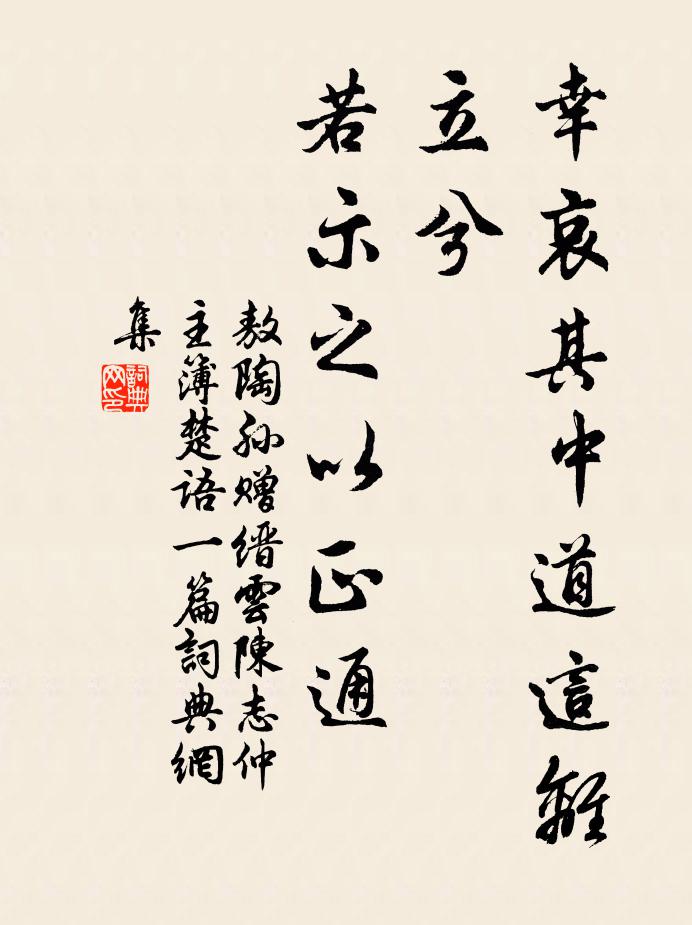 幸哀其中道這離
立兮
若示之以正通
敖陶孫贈縉雲陳志仲
主簿楚語一篇詞典網
集
詞典
网印